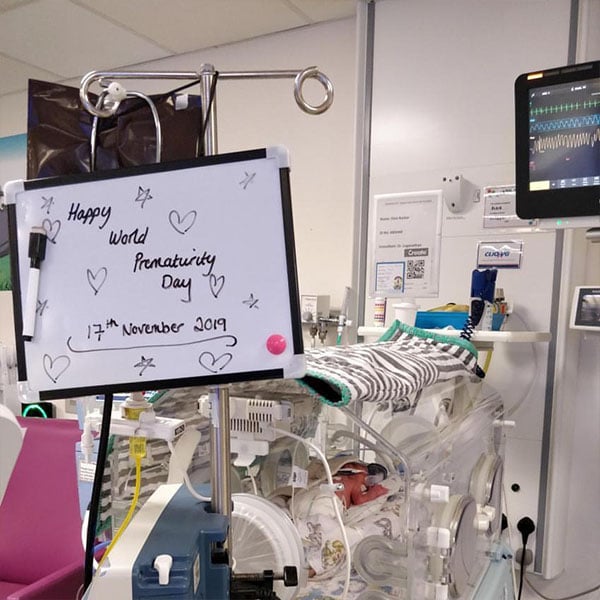 Happy
World
Prematurity
Day
17th November 2019
Create